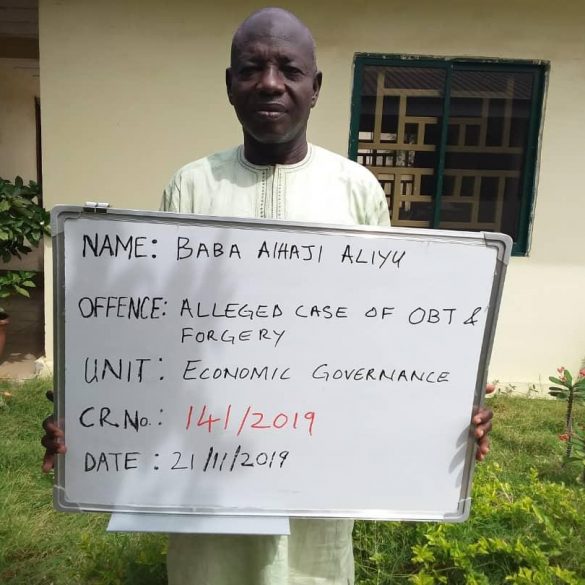 NAME: BABA AlHAJI ALIYU
OFFENCE: ALLEGED CASE OF OBT &
FORGERY
UNIT: ECONOMIC GOVERNANCE
CR.No.: 141/2019
DATE: 21/11/2019